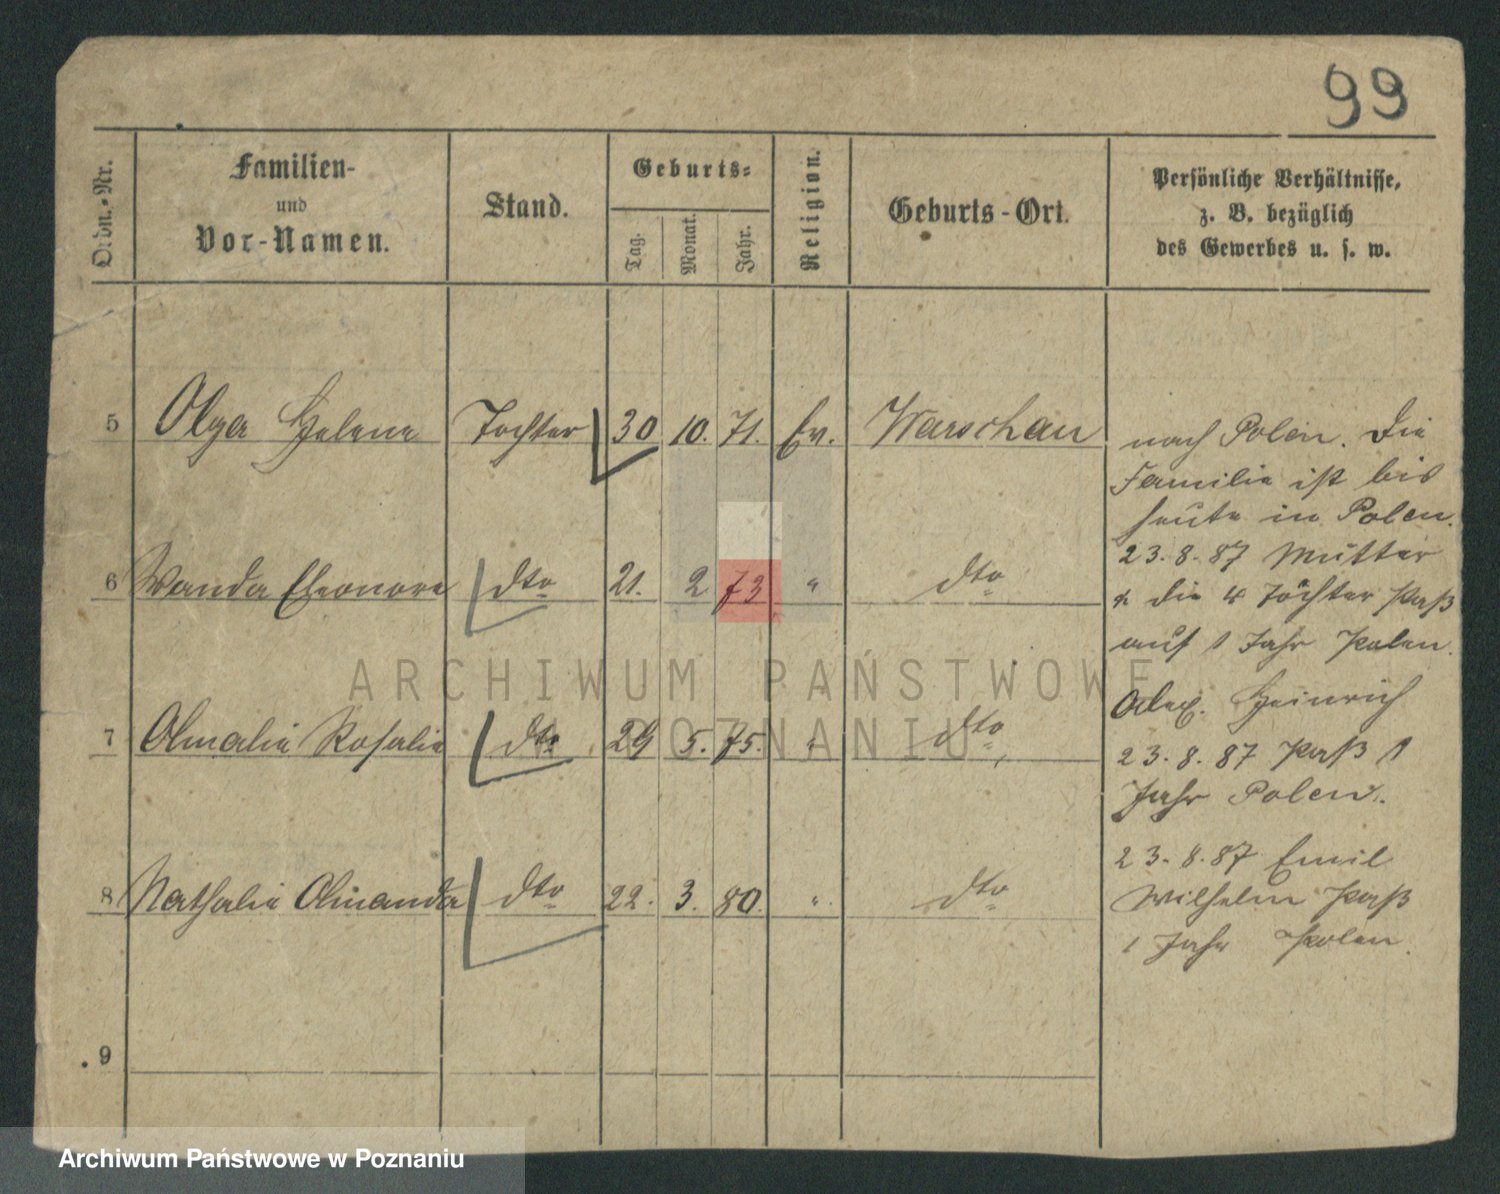 99
Ordn.-Nr.
Familien-
und
Vor-Namen.
Stand.
Geburts-
Tag.
Monat.
Jahr.
Religion.
Geburts-Ort.
Persönliche Verhältnisse,
z. B. bezüglich
des Gewerbes u. s. w.
5 Olga Helene Tochter 30 10. 71. Ev. Warschau
6 Wanda Eleonore dto 21. 2 73 " dto
7 Amalie Rosalie dto 29 5. 75. " dto
8 Nathalie Amanda dto 22. 3. 80. " dto
9
nach Polen. Die
Familie ist bis
heute in Polen.
23.8.87 Mutter
& die 4 Töchter Paß
auf 1 Jahr Polen.
Alex. Heinrich
23.8.87 Paß 1
Jahr Polen.
23.8.87 Emil
Wilhelm Paß
1 Jahr Polen.
ARCHIWUM PAŃSTWOWE
POZNANIU
Archiwum Państwowe w Poznaniu